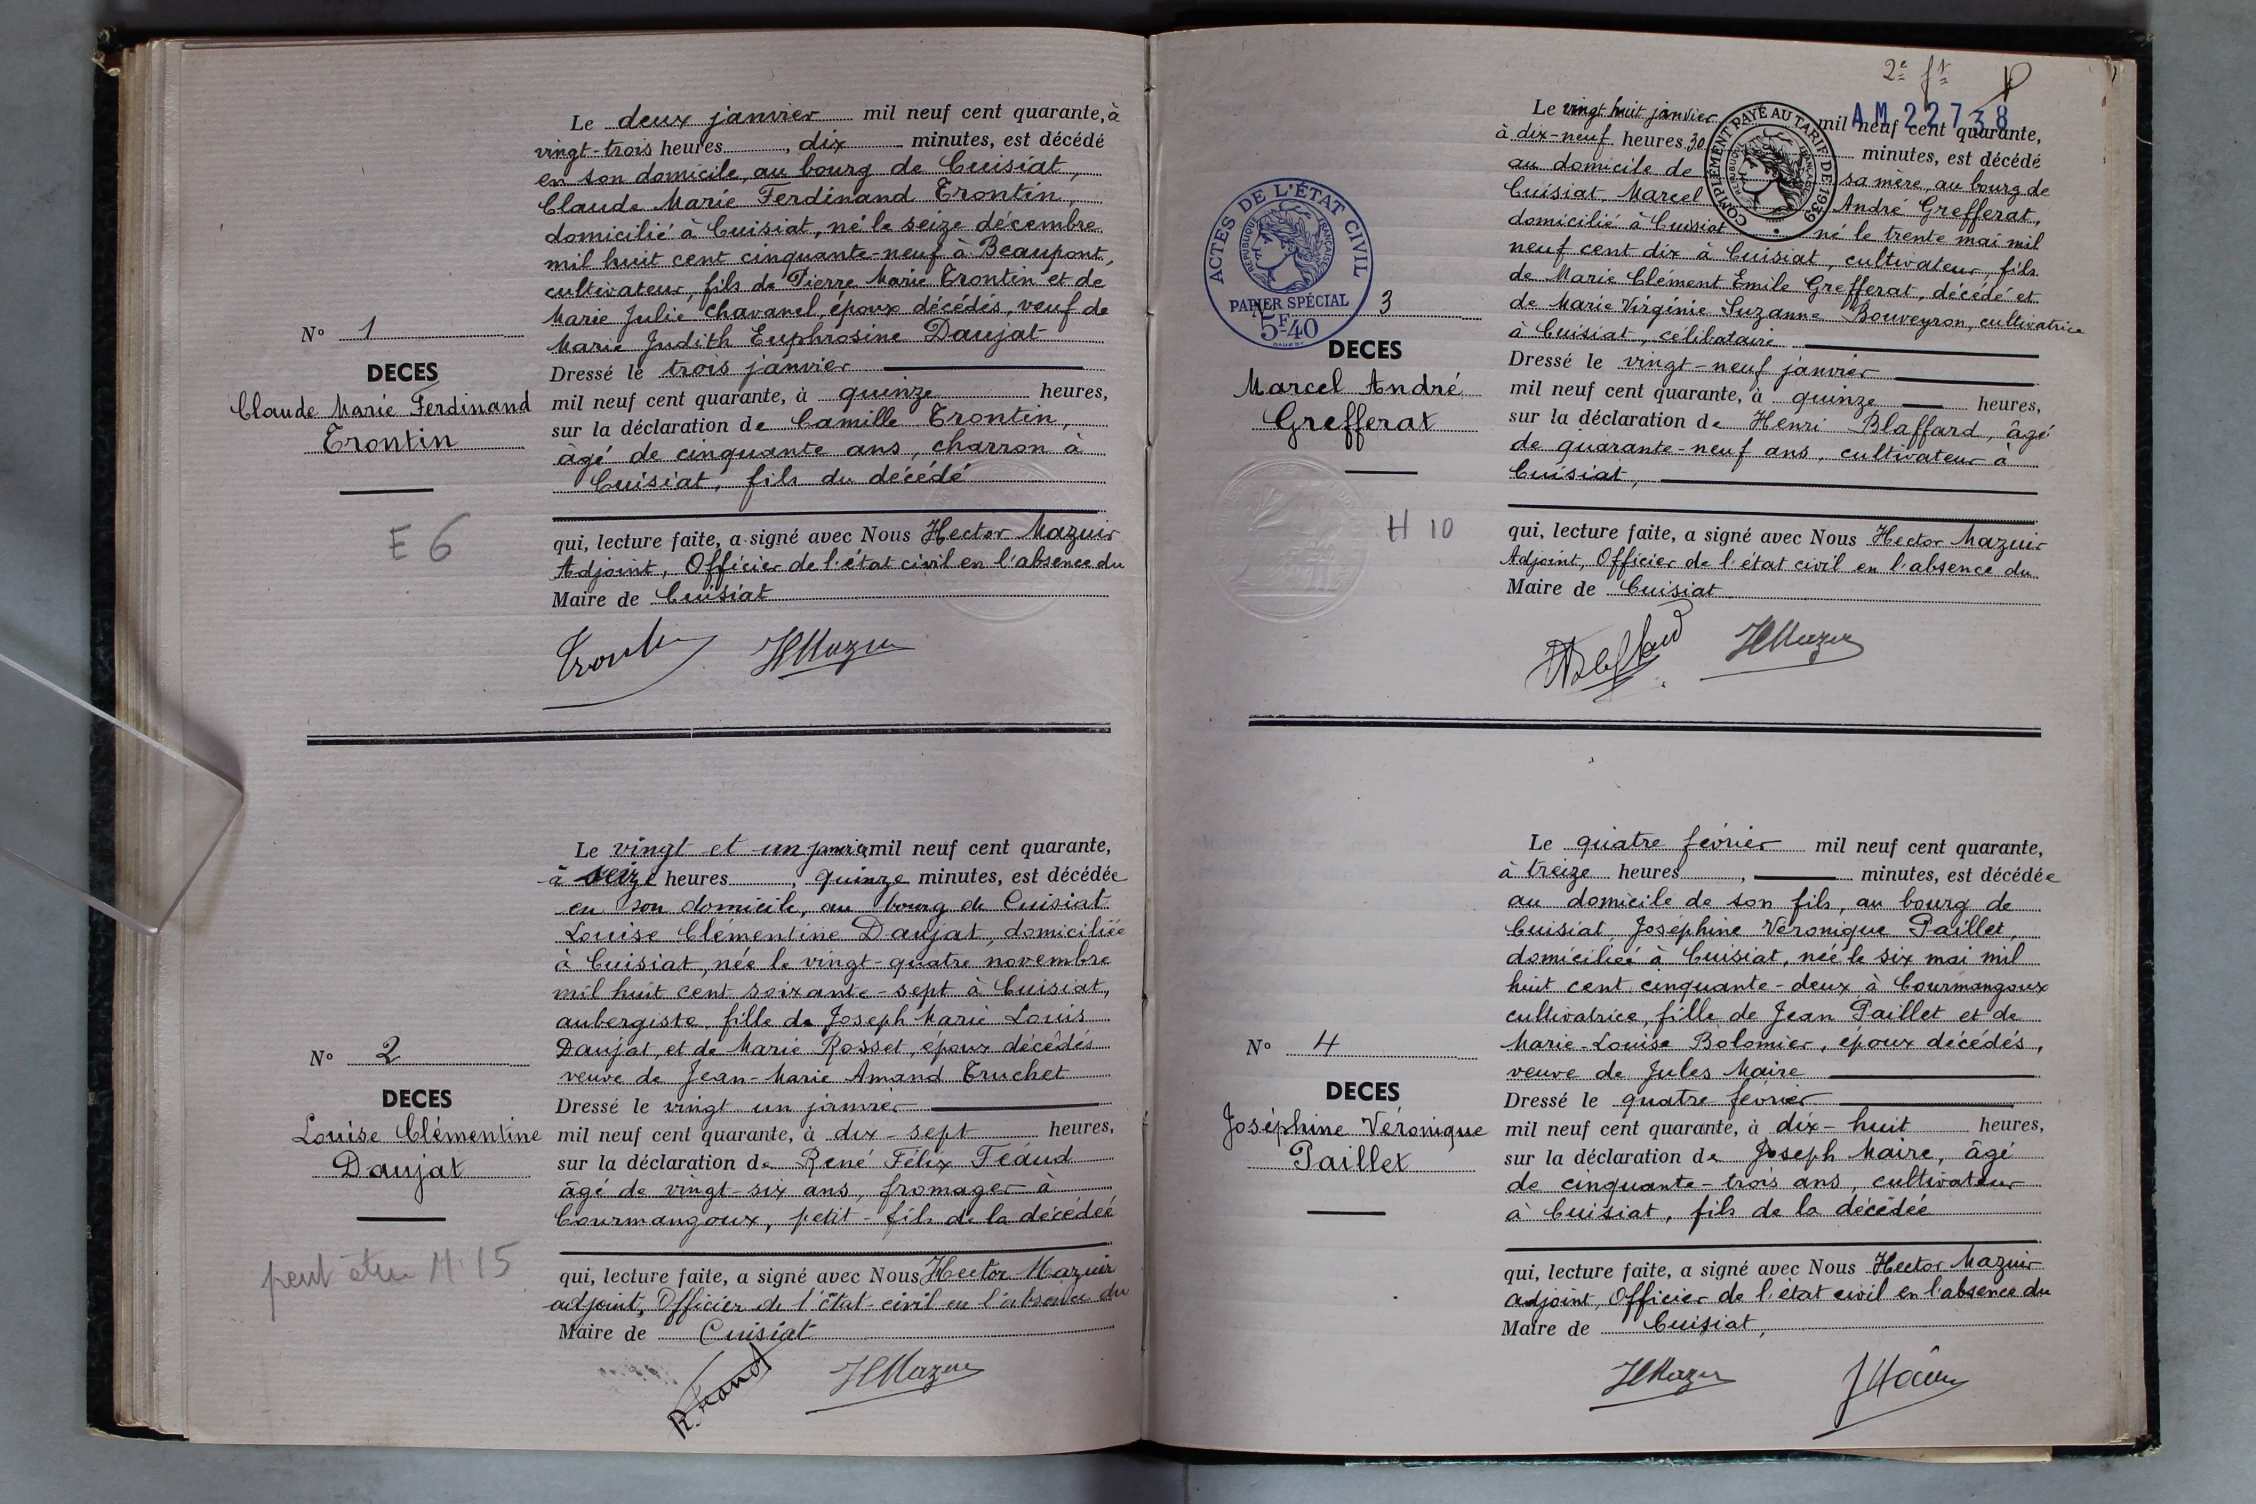 Le deux janvier mil neuf cent quarante, à
vingt-trois heures, dix minutes, est décédé
en son domicile, au bourg de Cuisiat,
Claude Marie Ferdinand Trontin,
domicilié à Cuisiat, né le seize décembre
mil huit cent cinquante-neuf à Beaupont,
cultivateur, fils de Pierre Marie Trontin et de
Marie Julie Chavanel, époux décédés, veuf de
Marie Judith Euphrosine Daujat
Dressé le trois janvier
mil neuf cent quarante, à quinze heures,
sur la déclaration de Camille Trontin,
âgé de cinquante ans, charron à
Cuisiat, fils du décédé
qui, lecture faite, a signé avec Nous Hector Mazuir
Adjoint, Officier de l'état civil en l'absence du
Maire de Cuisiat
N° 1
DECES
Claude Marie Ferdinand
Trontin
E 6
Trontin HMazuir
Le vingt et un janvier mil neuf cent quarante,
à seize heures, quinze minutes, est décédée
en son domicile, au bourg de Cuisiat
Louise Clémentine Daujat, domiciliée
à Cuisiat, née le vingt-quatre novembre
mil huit cent soixante-sept à Cuisiat,
aubergiste, fille de Joseph Marie Louis
Daujat, et de Marie Rosset, époux décédés
veuve de Jean-Marie Amand Truchet
Dressé le vingt un janvier
mil neuf cent quarante, à dix-sept heures,
sur la déclaration de René Félix Féaud
âgé de vingt-six ans, fromager à
Courmangoux, petit-fils de la décédée
qui, lecture faite, a signé avec Nous Hector Mazuir
adjoint, Officier de l'état-civil en l'absence du
Maire de Cuisiat
N° 2
DECES
Louise Clémentine
Daujat
peut être H 15
R. Féaud HMazuir
2e ft
AM 22738
COMPLÉMENT PAYÉ AU TARIF DE 1939
RÉPUBLIQUE FRANÇAISE
Le vingt huit janvier mil neuf cent quarante,
à dix-neuf heures 30 minutes, est décédé
au domicile de sa mère, au bourg de
Cuisiat, Marcel André Grefferat,
domicilié à Cuisiat né le trente mai mil
neuf cent dix à Cuisiat, cultivateur, fils
de Marie Clément Emile Grefferat, décédé et
de Marie Virginie Suzanne Bouveyron, cultivatrice
à Cuisiat, célibataire
Dressé le vingt-neuf janvier
mil neuf cent quarante, à quinze heures,
sur la déclaration de Henri Blaffard, âgé
de quarante-neuf ans, cultivateur à
Cuisiat,
qui, lecture faite, a signé avec Nous Hector Mazuir
Adjoint, Officier de l'état civil en l'absence du
Maire de Cuisiat
ACTES DE L'ÉTAT CIVIL
RÉPUBLIQUE FRANÇAISE
PAPIER SPÉCIAL
5F40
3
DECES
Marcel André
Grefferat
H 10
HBlaffard HMazuir
Le quatre février mil neuf cent quarante,
à treize heures, minutes, est décédée
au domicile de son fils, au bourg de
Cuisiat Joséphine Véronique Paillet,
domiciliée à Cuisiat, née le six mai mil
huit cent cinquante-deux à Courmangoux
cultivatrice, fille de Jean Paillet et de
Marie-Louise Bolomier, époux décédés,
veuve de Jules Maire
Dressé le quatre février
mil neuf cent quarante, à dix-huit heures,
sur la déclaration de Joseph Maire, âgé
de cinquante-trois ans, cultivateur
à Cuisiat, fils de la décédée
qui, lecture faite, a signé avec Nous Hector Mazuir
adjoint, Officier de l'état civil en l'absence du
Maire de Cuisiat,
N° 4
DECES
Joséphine Véronique
Paillet
HMazuir JMaire